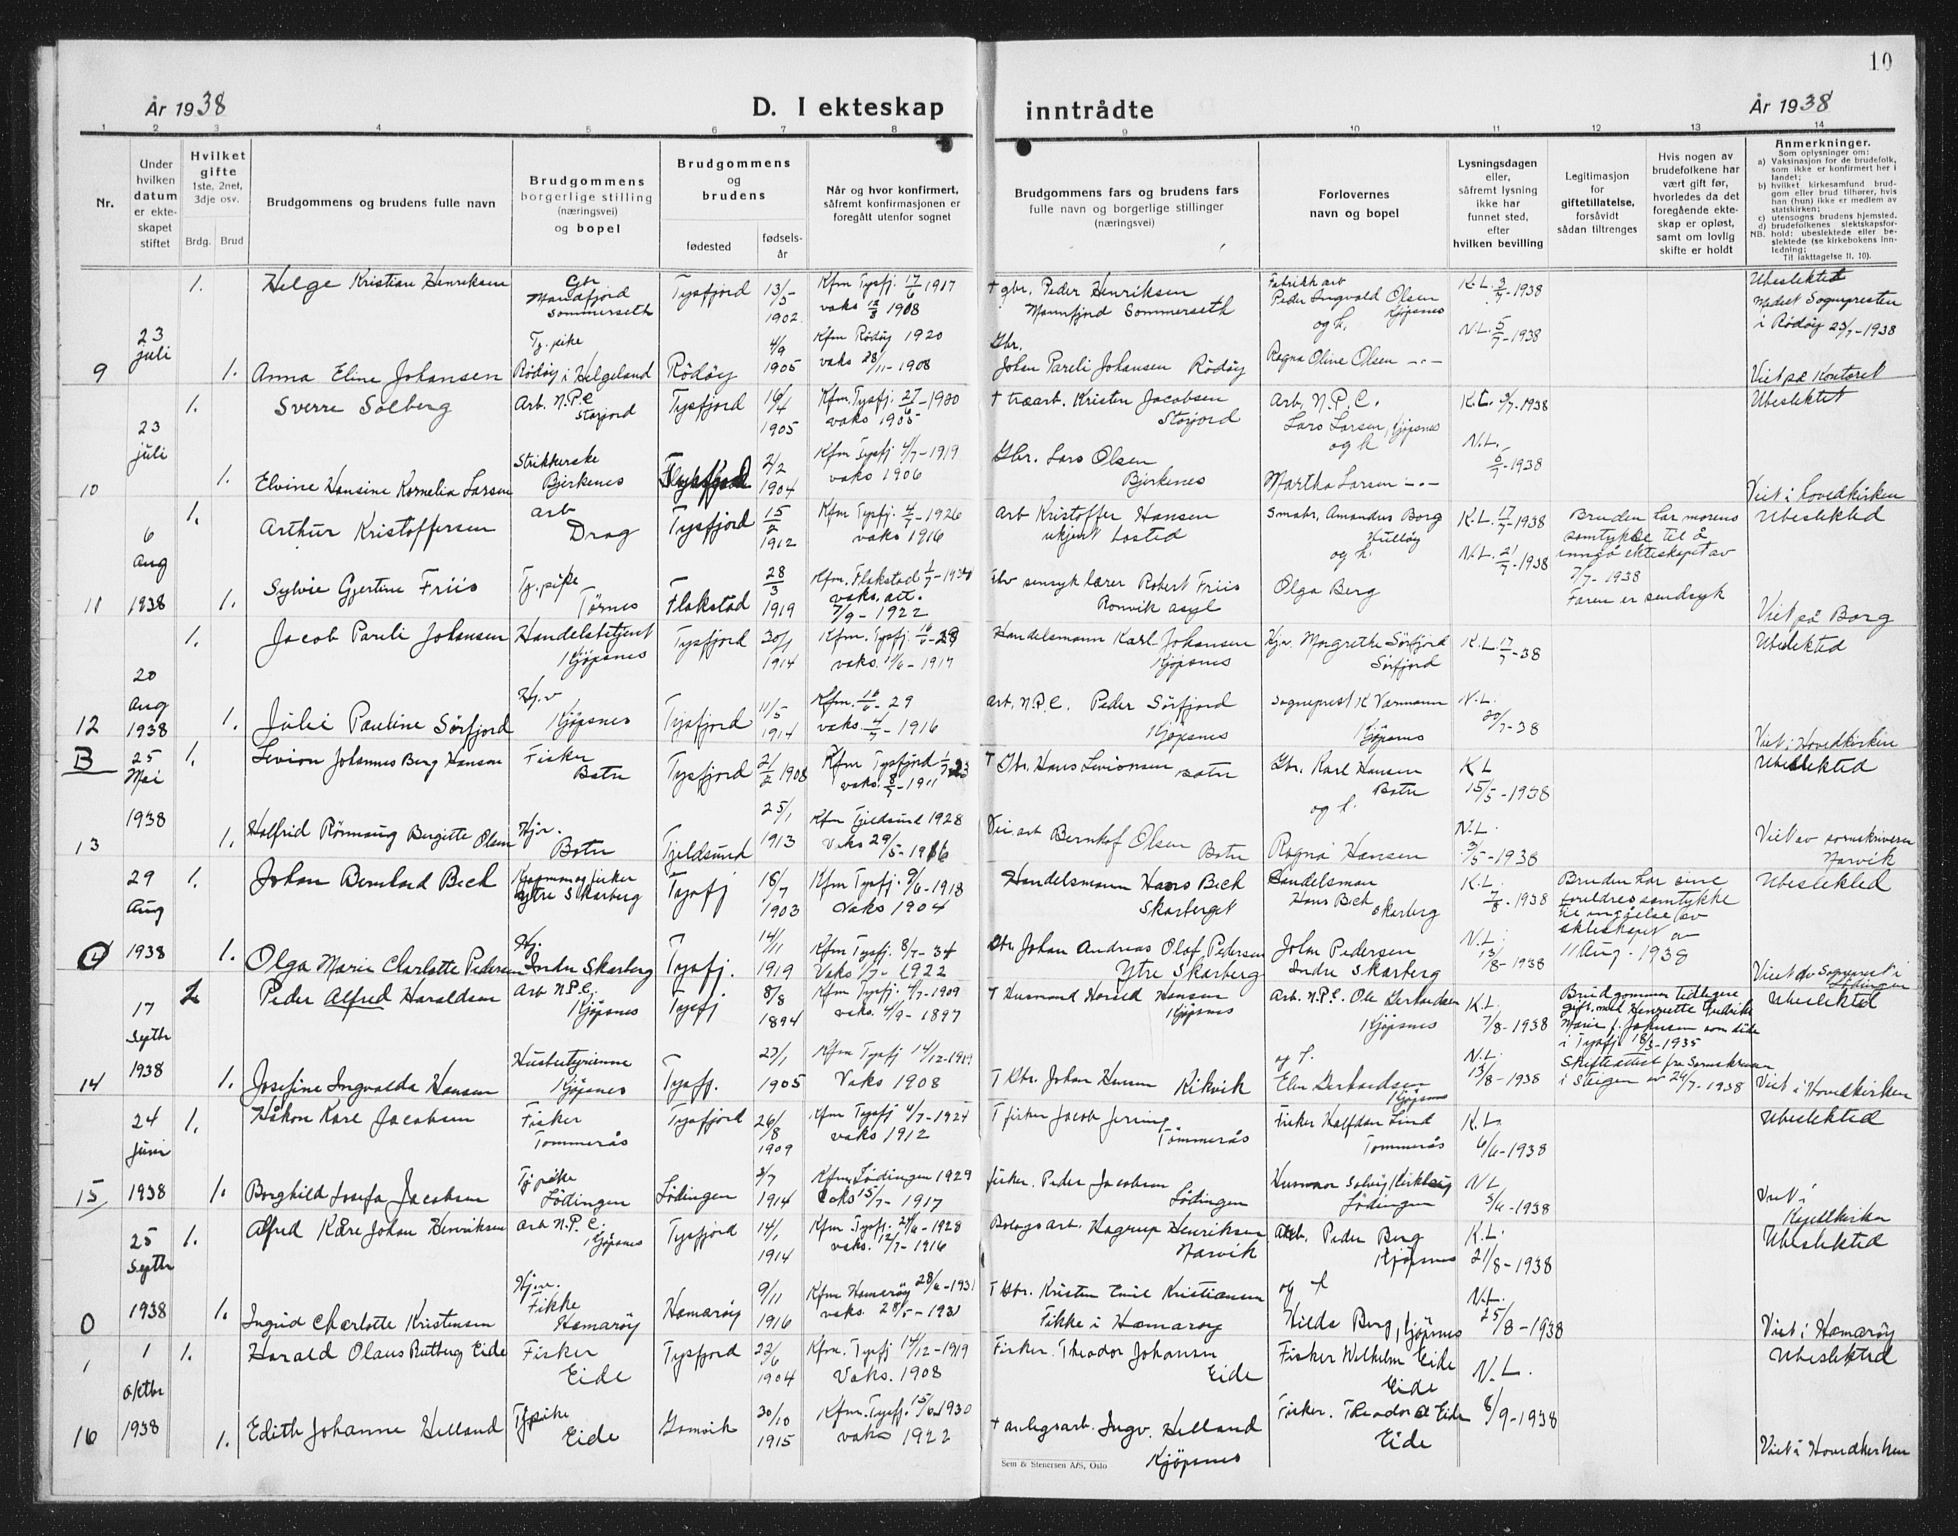 10
År 1938
D. I ekteskap
inntrådte
År 1938
1 2 3 4 5 6 7 8 9 10 11 12 13 14
Nr.
Under hvilken datum er ekteskapet stiftet
Hvilket gifte
1ste, 2net, 3dje osv.
Brdg. Brud
Brudgommens og brudens fulle navn
Brudgommens
borgerlige stilling
(næringsvei)
og bopel
Brudgommens
og
brudens
fødested
fødsels-
år
Når og hvor konfirmert,
såfremt konfirmasjonen er
foregått utenfor sognet
Brudgommens fars og brudens fars
fulle navn og borgerlige stillinger
(næringsvei)
Forlovernes
navn og bopel
Lysningsdagen
eller,
såfremt lysning
ikke har
funnet sted,
efter
hvilken bevilling
Legitimasjon
for
giftetillatelse,
forsåvidt
sådan tiltrenges
Hvis nogen av
brudefolkene har
vært gift før,
hvorledes da det
foregående ekte-
skap er opløst,
samt om lovlig
skifte er holdt
Anmerkninger.
Som oplysninger om:
a) Vaksinasjon for de brudefolk,
som ikke er konfirmert her i
landet;
b) hvilket kirkesamfund brud-
gom eller brud tilhører, hvis
han (hun) ikke er medlem av
statskirken;
c) utensogns brudens hjemsted.
d) brudefolkenes slektskapsfor-
NB. hold: ubeslektede eller be-
slektede (se kirkebokens inn-
ledning;
Til iakttagelse 11, 10).
9
23
juli
1. Helge Kristian Henriksen
Gbr
Mannfjord
Sommerseth
Tysfjord
13/5
1902
Kfm Tysfj. 17/6 1917
vaks 12/8 1908
+ gbr. Peder Henriksen
Mannfjord Sommerseth
Fabrikk arb
Peder Ingvald Olsen
Kjøpsnes
og h.
K.L. 3/7-1938
Ubeslekted
Medest Sognepresten
i Rødøy 23/7-1938
1. Anna Eline Johansen
Tj. pike
Rødøy i Helgeland
Rødøy
4/9
1905
Kfm Rødøy 1920
vaks 28/11-1908
Gbr.
Johan Pareli Johansen Rødøy
Ragna Oline Olsen -"-
N.L. 5/7-1938
Viet på Kontoret
10
23
juli
1. Sverre Solberg
Arb. N.P.C
Storjord
Tysfjord
16/4
1905
Kfm. Tysfj. 27/6-1920
vaks 1905
+ træarb. Kristen Jacobsen
Storjord
Arb. N.P.C.
Lars Larsen, Kjøpsnes
og h
K.L. 3/7-1938
Ubeslektet
1. Elvine Hansine Kornelia Larsen
Strikkerske
Bjerkenes
Tysfjord
2/2
1904
Kfm Tysfj 4/7-1919
vaks 1906
Gbr. Lars Olsen
Bjerkenes
Martha Larsen -"-
N.L.
5/7-1938
Viet i hovedkirken
11
6
Aug
1938
1. Arthur Kristoffersen
arb
Drag
Tysfjord
15/2
1912
Kfm Tysfj. 4/7-1926
vaks 1916
arb Kristoffer Hansen
ukjent bosted
Smabr. Amandus Borg
Hulløy
og h.
K.L. 17/7-1938
N.L. 21/7-1938
Bruden har morens
samtykke til å
inngå ekteskapet av
7/7-1938
Faren er sendsyk
Ubeslekted
1. Sylvie Gjertine Friis
Tj. pike
Tørnes
Flakstad
28/3
1919
Kfm. Flakstad 1/7-1934
vaks. att.
7/9-1922
Elv sinsyk lærer Robert Friis
Ronvik asyl
Olga Berg
Viet på Borg
12
20
Aug
1938
1. Jacob Pareli Johansen
Handelsbetjent
Kjøpsnes
Tysfjord
30/1
1914
Kfm. Tysfj. 16/6-29
vaks. 1/6-1917
Handelsmann Karl Johansen
Kjøpsnes
Hjv. Margrethe Sørfjord
Sørfjord
K.L. 17/7-38
Ubeslekted
1. Julie Pauline Sørfjord
Hj.v
Kjøpsnes
Tysfjord
11/5
1914
Kfm. 16/6-29
vaks. 4/7-1916
arb. N.P.C. Peder Sørfjord
Kjøpsnes
Sogneprest K Varmann
Kjøpsnes
N.L.
20/7-38
Viet i Hovedkirken
B
13
25
Mai
1938
1. Levion Johannes Berg Hansen
Fisker
Botn
Tysfjord
21/2 1908
Kfm Tysfjord 1/7-23
vaks. 8/7-1911
+ Gbr. Hans Levionsen
Botn
Gbr. Karl Hansen
Botn
og h.
K L
15/5-1938
Ubeslekted
1. Halfrid Rønnaug Bergitte Olsen
Hjv.
Botn
Tjeldsund
25/1
1913
Kfm Tjeldsund 1928
Vaks 29/5-1916
Bernhof Olsen
Botn
Ragna Hansen
N.L.
3/5-1938
Viet av sorenskriveren
Narvik
29
Aug
1938
1. Johan Bernhard Bech
Kjøpmann og fisker
Ytre Skarberg
Tysfj
18/7
1903
Kfm Tysfj 9/6-1918
Vaks 1904
Handelsmann Hans Bech
Skarberget
Handelsman
Hans Bech
Skarberg
K.L.
7/8-1938
Bruden har sine
foreldres samtykke
til inngåelse av
ekteskapet av
11 Aug-1938
Ubeslekted
1. Olga Marie Charlotte Pedersen
Hj.
Indre Skarberg
Tysfj.
14/11
1919
Kfm Tysfj. 8/7-34
Vaks 1/7-1922
Gbr Johan Andreas Olaf Pedersen
Ytre Skarberg
John Pedersen
Indre Skarberg
N.L.
13/8-1938
Viet av Sogneprest i
Lødingen
14
17
Septbr
1938
2 Peder Alfred Haraldsen
Arb N.P.C.
Kjøpsnes
Tysfj
8/8
1894
Kfm Tysfj. 4/7-1909
vaks. 4/9-1897
+ Husmand Harald Hansen
Kjøpsnes
Arb. N.P.C. Ole Gerhardsen
Kjøpsnes
og h.
K.L.
7/8-1938
Brudgommen tidligere
gift med Henriette Fredrikke
Marie f. Johnsen som døde
i Tysfj. 18/3-1935
Skifteattest fra Sorenskriveren
i Steigen av 24/7-1938
Ubeslekted
1. Josefine Ingvalda Hansen
Husbestyrinne
Kjøpsnes
Tysfj.
23/1
1905
Kfm Tysfj 14/12-1919
Vaks 1908
+ Gbr. Johan Hansen Kikvik
Elen Gerhardsen
Kjøpsnes
N.L.
13/8-1938
Viet i Hovedkirken
15
24
Juni
1938
1. Håkon Kare Jacobsen
Fisker
Tømmerås
Tysfjord
26/8
1909
Kfm Tysfj 4/7-1924
vaks 1912
+ fisker Jacob Jering
Tømmerås
Fisker Halfdan Lind
Tømmerås
K.L.
6/6-1938
Ubeslekted
1. Borghild Josefa Jacobsen
Tj pike
Lødingen
Lødingen
3/7
1914
Kfm. Lødingen 1929
Vaks 15/7-1917
fisker. Peder Jacobsen
Lødingen
Husmor Solvig Kirkhaug
Lødingen
N L
5/6-1938
Viet i
Kapellkirken
0
25
Septbr
1938
1. Alfred Kåre Johan Henriksen
arb N.P.C.
Kjøpsnes
Tysfjord
14/1
1914
Kfm. Tysfj. 24/6-1928
vaks. 12/7-1916
Bolags arb. Hagrup Henriksen
Narvik
Arb. Peder Berg
Kjøpsnes
og h
K.L.
21/8-1938
Ubeslekted
1. Ingrid Charlotte Kristensen
Hjv.
Fikke
Hamarøy
Hamarøy
9/11
1916
Kfm Hamarøy 28/6-1931
vaks. 28/5-1931
+ Gbr. Kristen Emil Kristiansen
Fikke i Hamarøy
Hilda Berg, Kjøpsnes
N.L.
25/8-1938
Viet i Hamarøy
1
16
1
Oktbr
1938
1. Harald Olaus Rutberg Eide
Fisker
Eide
Tysfjord
22/6
1904
Kfm. Tysfj 14/12-1919
Vaks. 1908
Fisker. Theodor Johansen
Eide
Fisker Wilhelm Eide
Eide
N.L.
Ubeslekted
1. Edith Johanne Helland
Tj pike
Eide
Gamvik
30/10
1915
Kfm. Tysfj. 15/6-1930
vaks 1922
+ anlegsarb. Ingv. Helland
Kjøpsnes
Fisker. Theodor Eide
Eide
8/9-1938
Viet i Hovedkirken
Sem & Stenersen A/S, Oslo